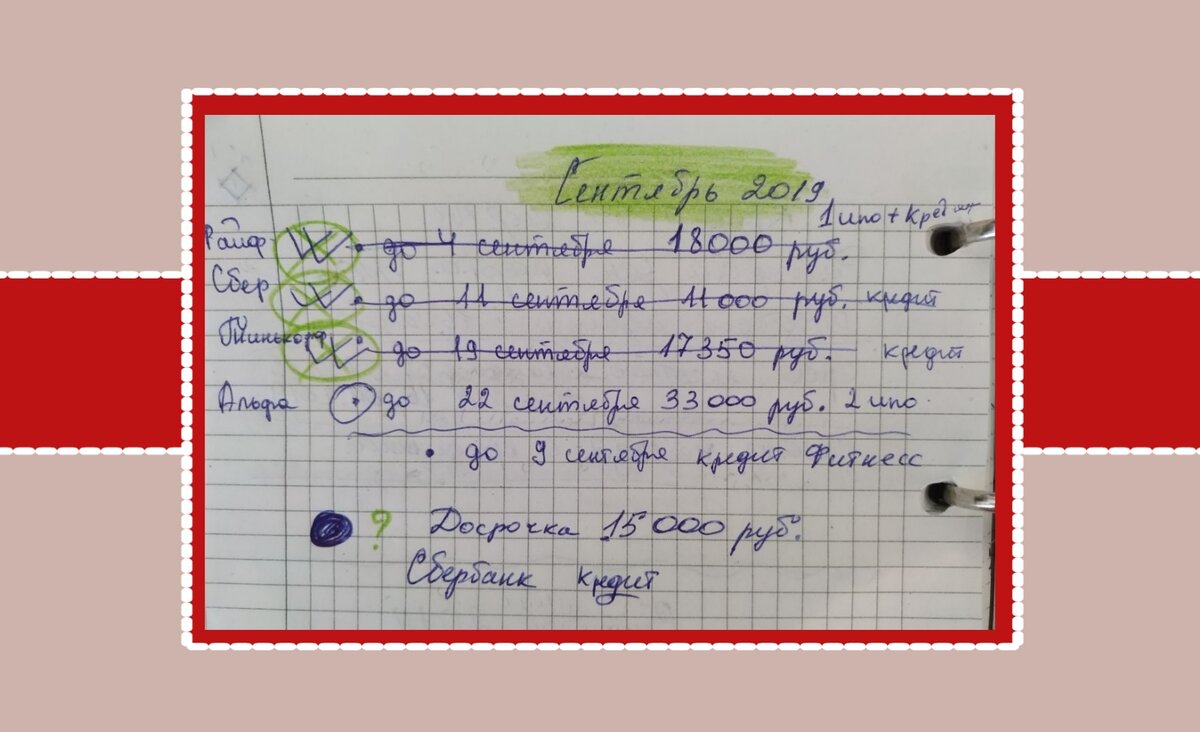 Сентябрь 2019
1 ипо + кредит
Райф до 4 сентября 18000 руб.
Сбер до 11 сентября 11000 руб. кредит
Тинькофф до 19 сентября 17350 руб. кредит
Альфа до 22 сентября 33000 руб. 2 ипо
до 9 сентября кредит Фитнесс
? Досрочка 15000 руб.
Сбербанк кредит